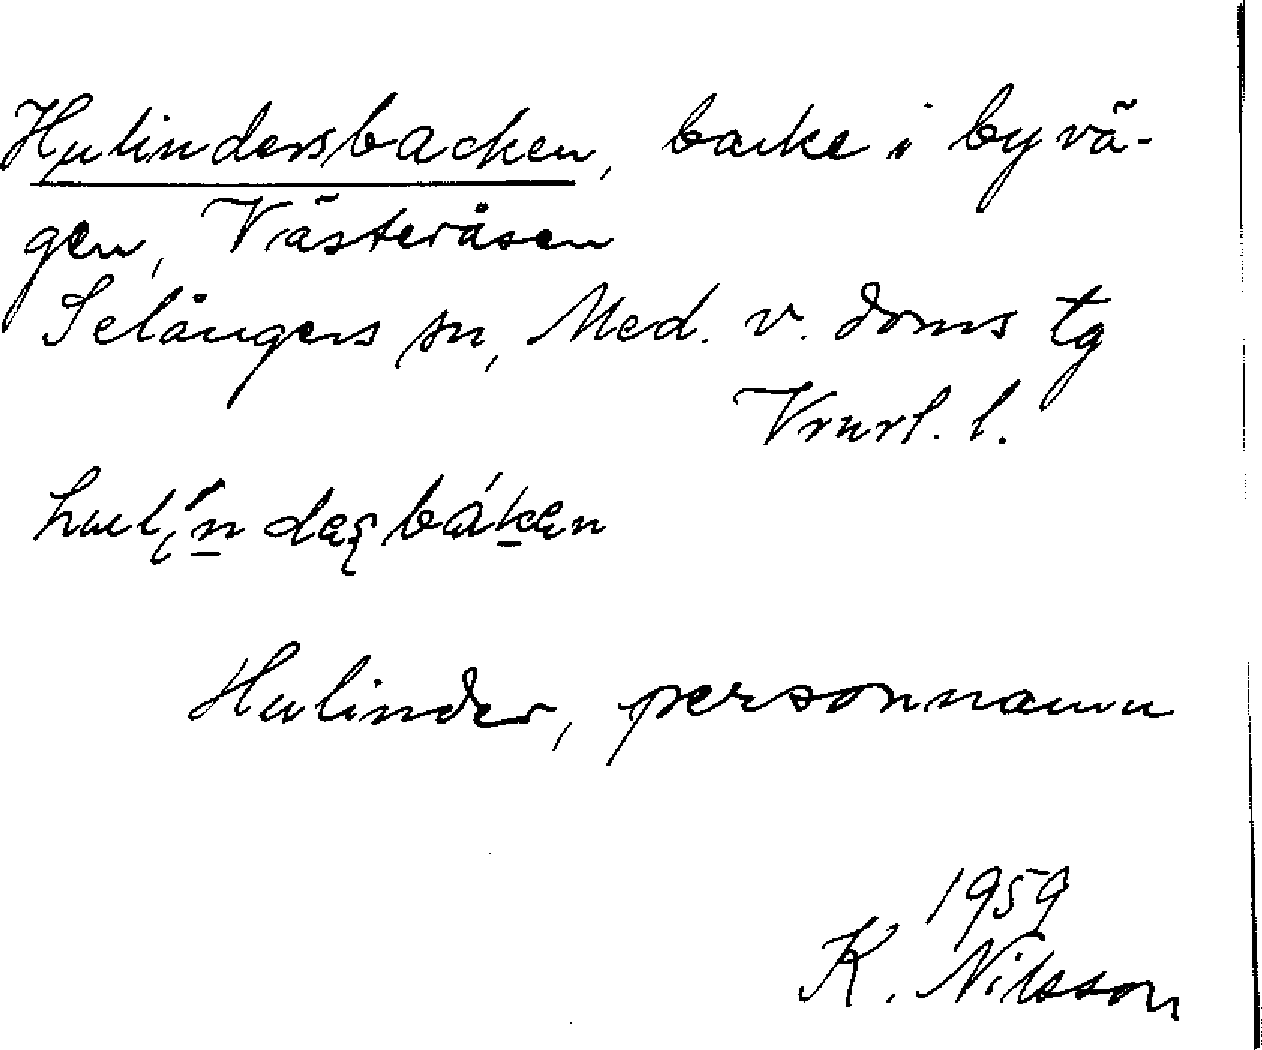 Hulindersbacken, backe i byvä-
gen, Västeråsen
Selångers sn, Med. v. doms tg
Vnrl. l.
Hulinder, personnamn
1959
K. Nilsson